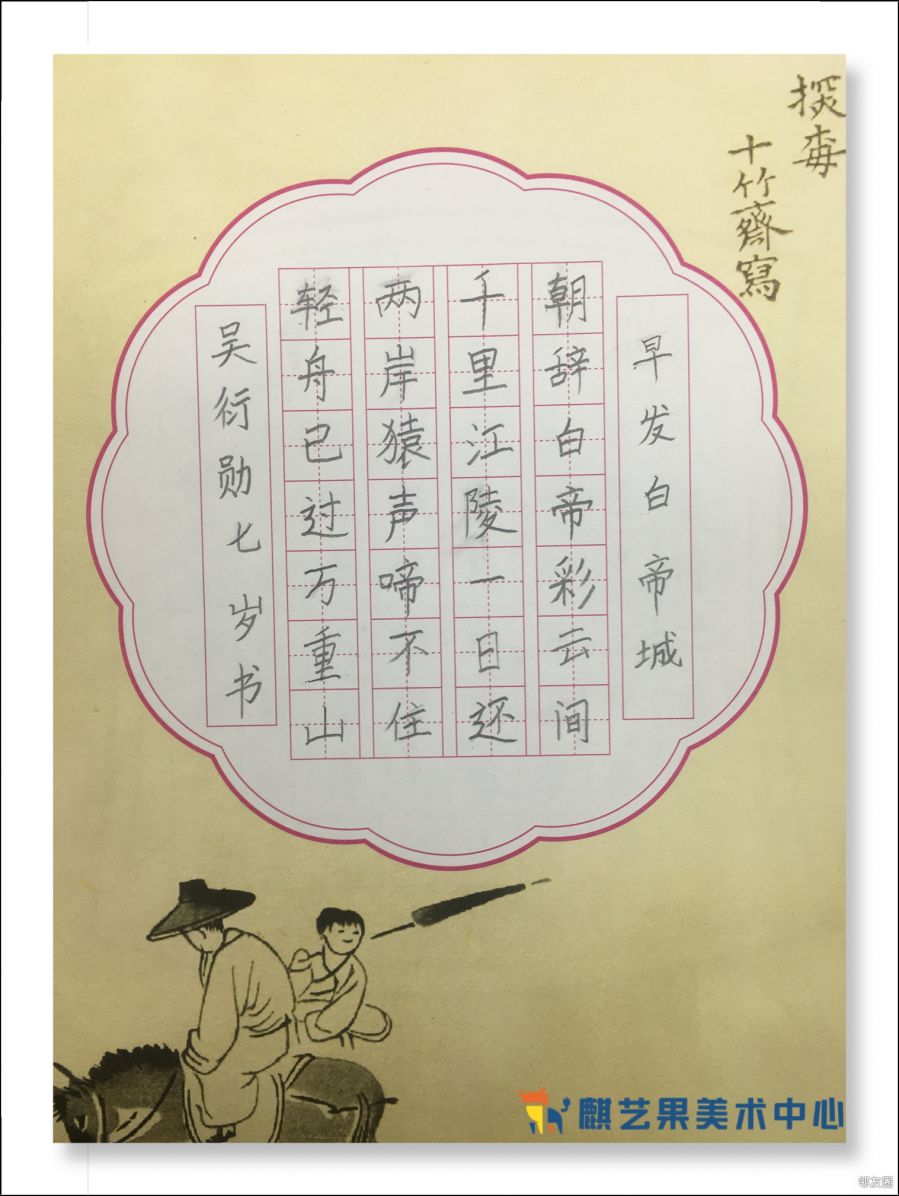 早发白帝城
朝辞白帝彩云间
千里江陵一日还
两岸猿声啼不住
轻舟已过万重山
吴衍勋七岁书
十竹齋寫
麒艺果美术中心
邻友圈